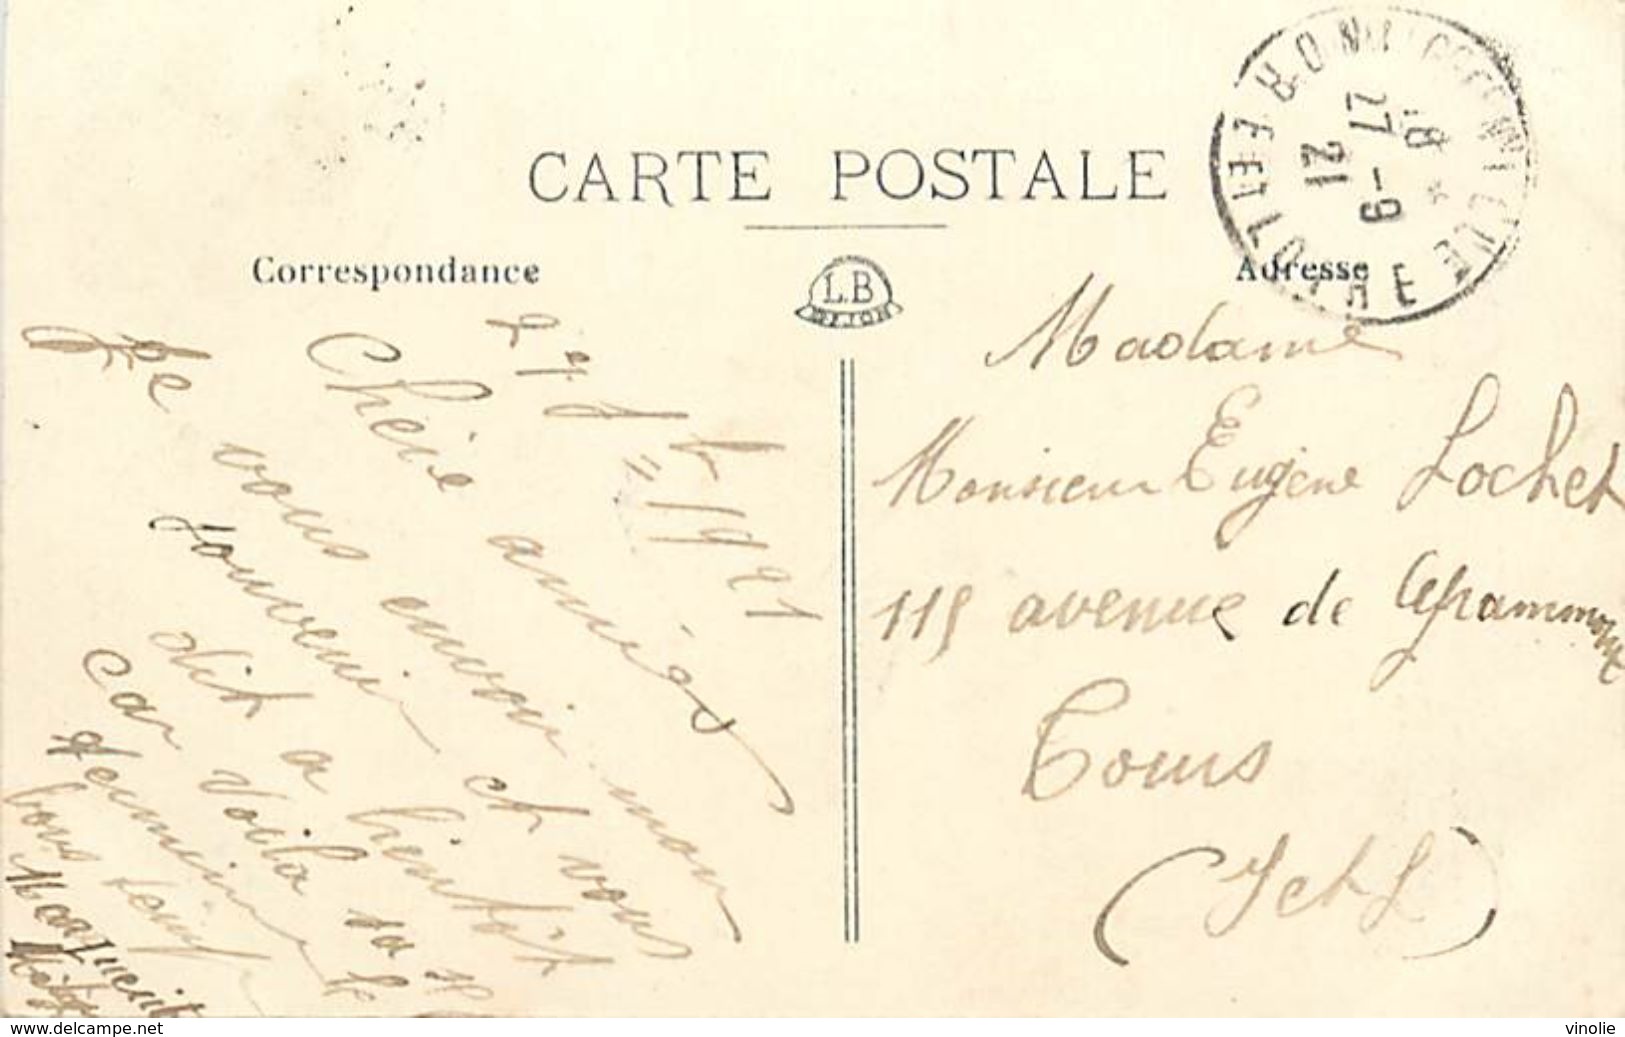 CARTE POSTALE
Correspondance
L.B
DIJON
Adresse
18 *
27 - 9
21
27 7bre 1921
Chère amies
Je vous envoir mon
souvenir et vous
dit a bientôt
car voila sa
bone
Madame
Monsieur Eugène Lochet
115 avenue de Grammont
Tours
(I et L)
www.delcampe.net
vinolie